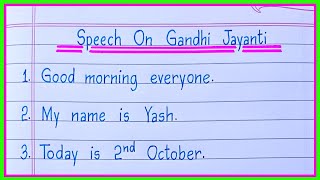 Speech On Gandhi Jayanti
1. Good morning everyone.
2. My name is Yash.
3. Today is 2nd October.